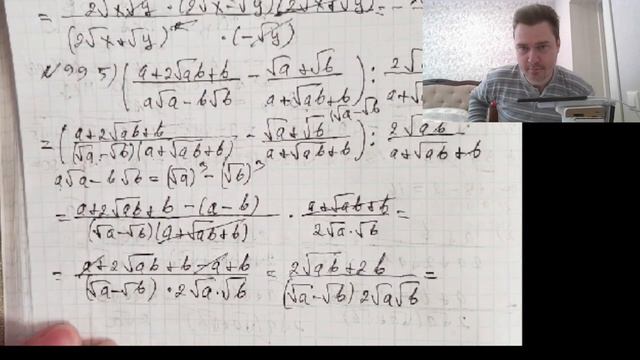 = 2√x√y · (2√x-√y)(2√x+√y) = -
(2√x+√y) · (-√y)
№995) ( a+2√ab+b / a√a-b√b - √a+√b / a+√ab+b ) : 2√ / a+√
(√a-√b
= ( a+2√ab+b / (√a-√b)(a+√ab+b) - √a+√b / a+√ab+b ) : 2√ab / a+√ab+b
a√a-b√b = (√a)³-(√b)³
= a+2√ab+b-(a-b) / (√a-√b)(a+√ab+b) · a+√ab+b / 2√a·√b =
= a+2√ab+b-a+b / (√a-√b)·2√a·√b = 2√ab+2b / (√a-√b)2√a√b =